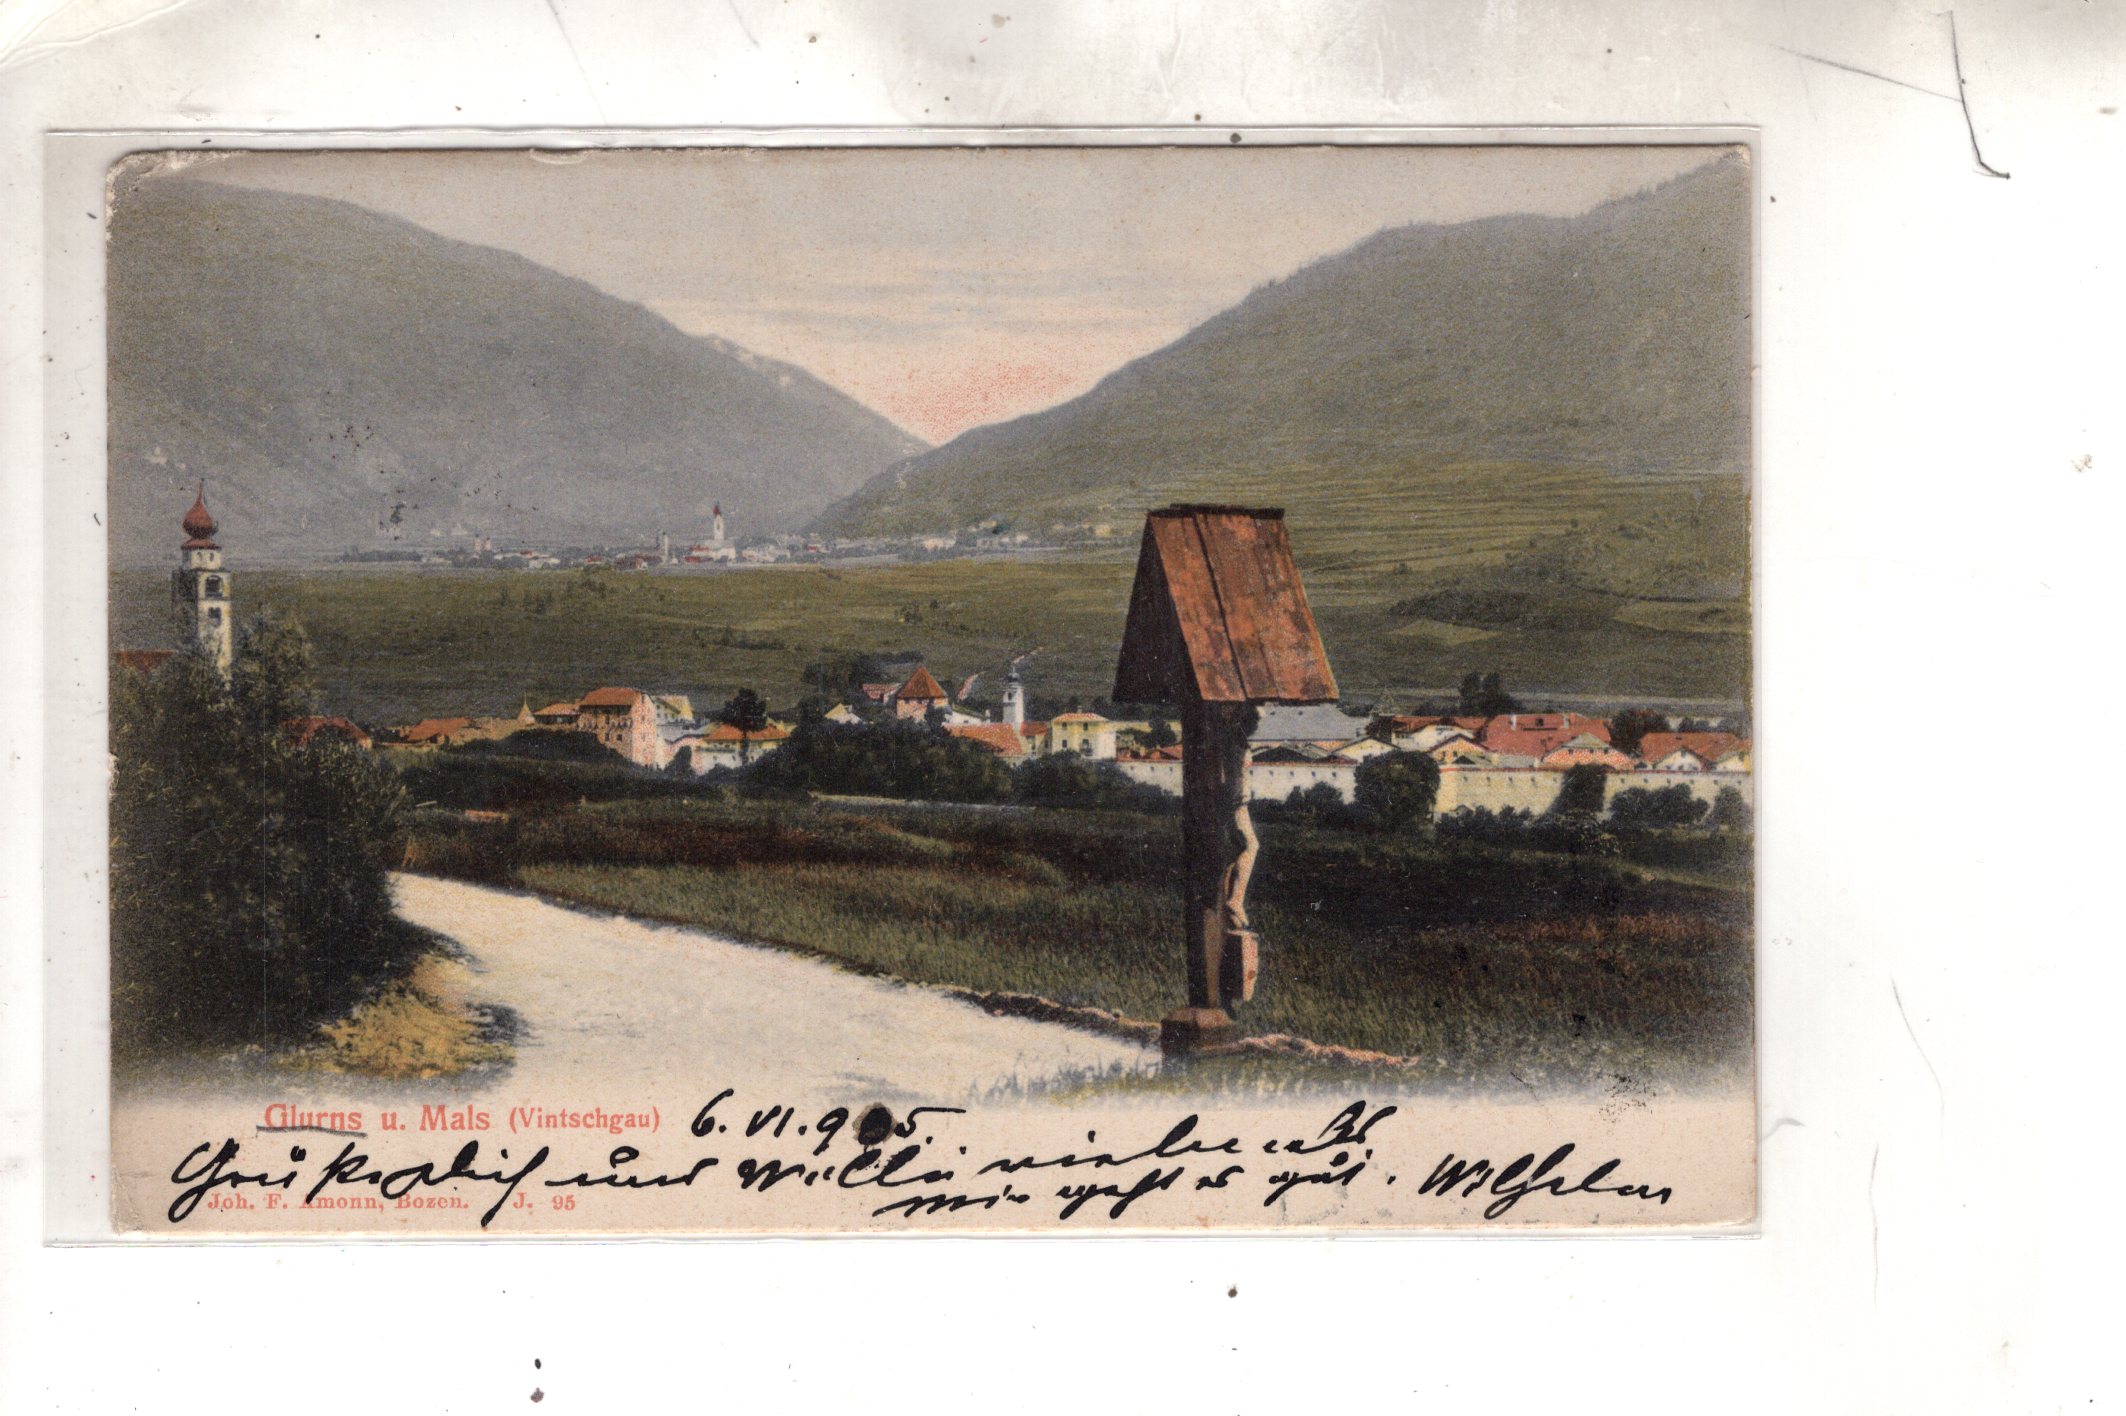 Glurns u. Mals (Vintschgau) 6. VI. 905.
Grüße dich und Willi
mir geht es gut. Wilhelm
Joh. F. Amonn, Bozen. J. 95